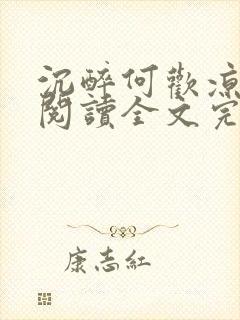 沉醉何歡涼
閱讀全文完
康志紅